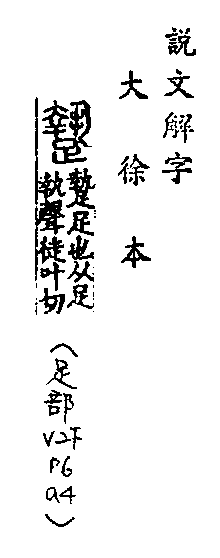 說文解字
大徐本
足也从足
執聲徒叶切
（足部
V2下
P6
a4）